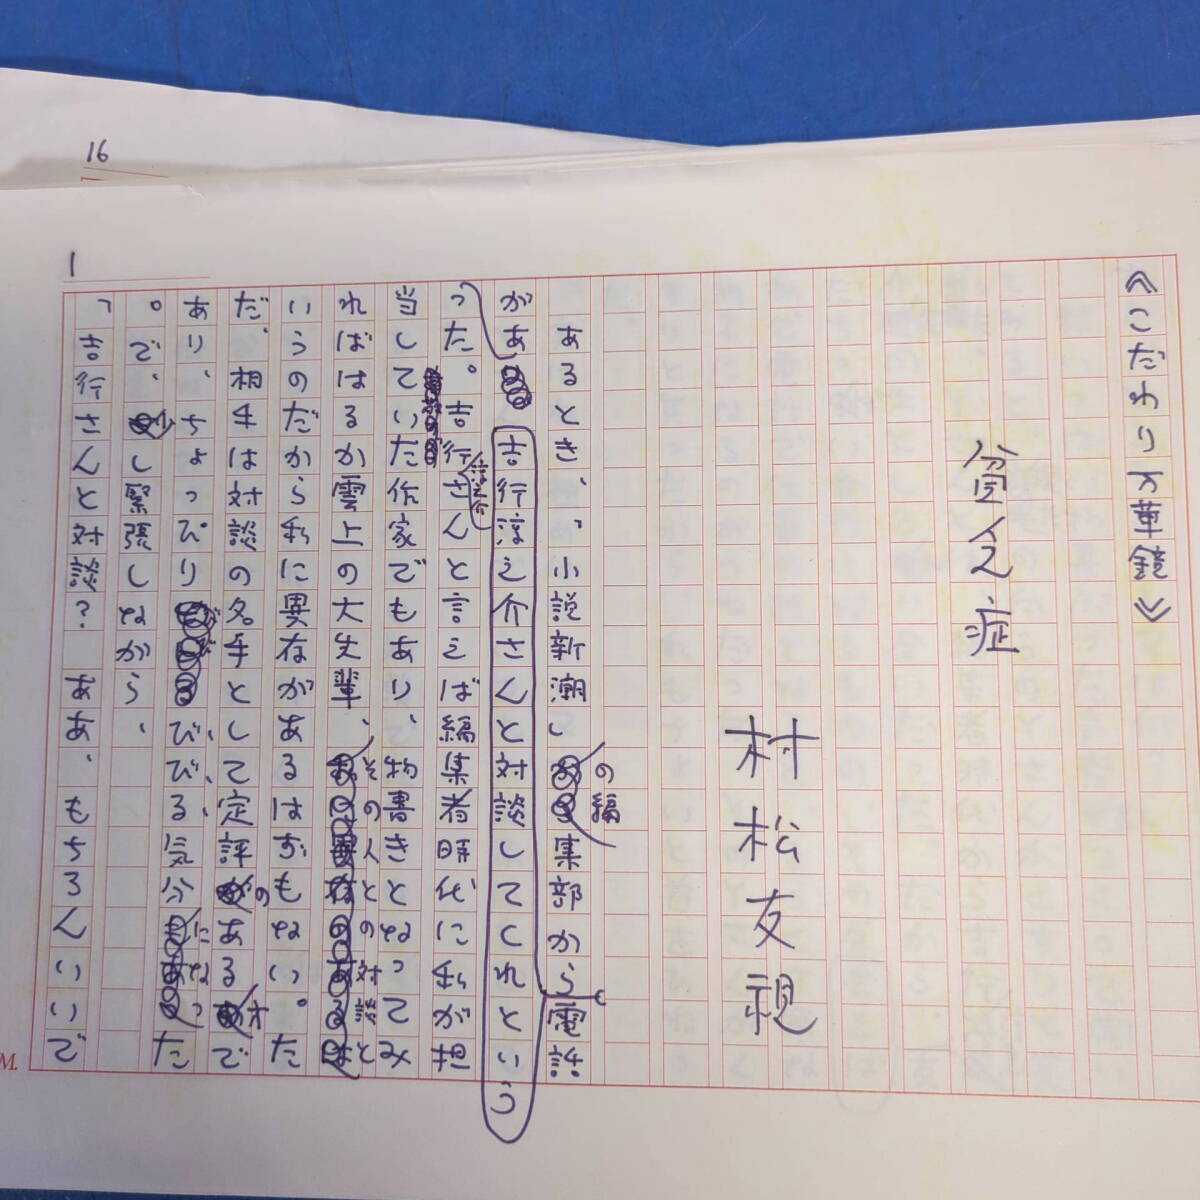 《こだわり万華鏡》
貧乏症
村松友視
あるとき、「小説新潮」の編集部から電話
があ吉行淳之介さんと対談してくれという
った。吉行淳之介さんと言えば編集者時代に私が担
当していた作家でもあり、物書きとなってみ
ればはるか雲上の大先輩、その人との対談と
いうのだから私に異存があるはずもない。た
だ、相手は対談の名手として定評のある方で
あり、ちょっぴりびびる気分になった
。で、少し緊張しながら、
「吉行さんと対談？　ああ、もちろんいいで
1
16
M.